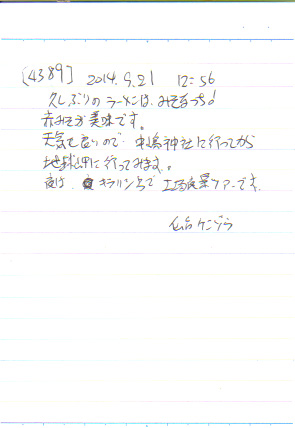 [4389] 2014.9.21 12:56
久しぶりのラーメンは、みそまっち!
赤みそが美味です。
天気も良いので、中嶋神社に行ってから
地球岬に行ってみます。
夜は、キラリン号で工場夜景ツアーです。
仙台ケンゾウ